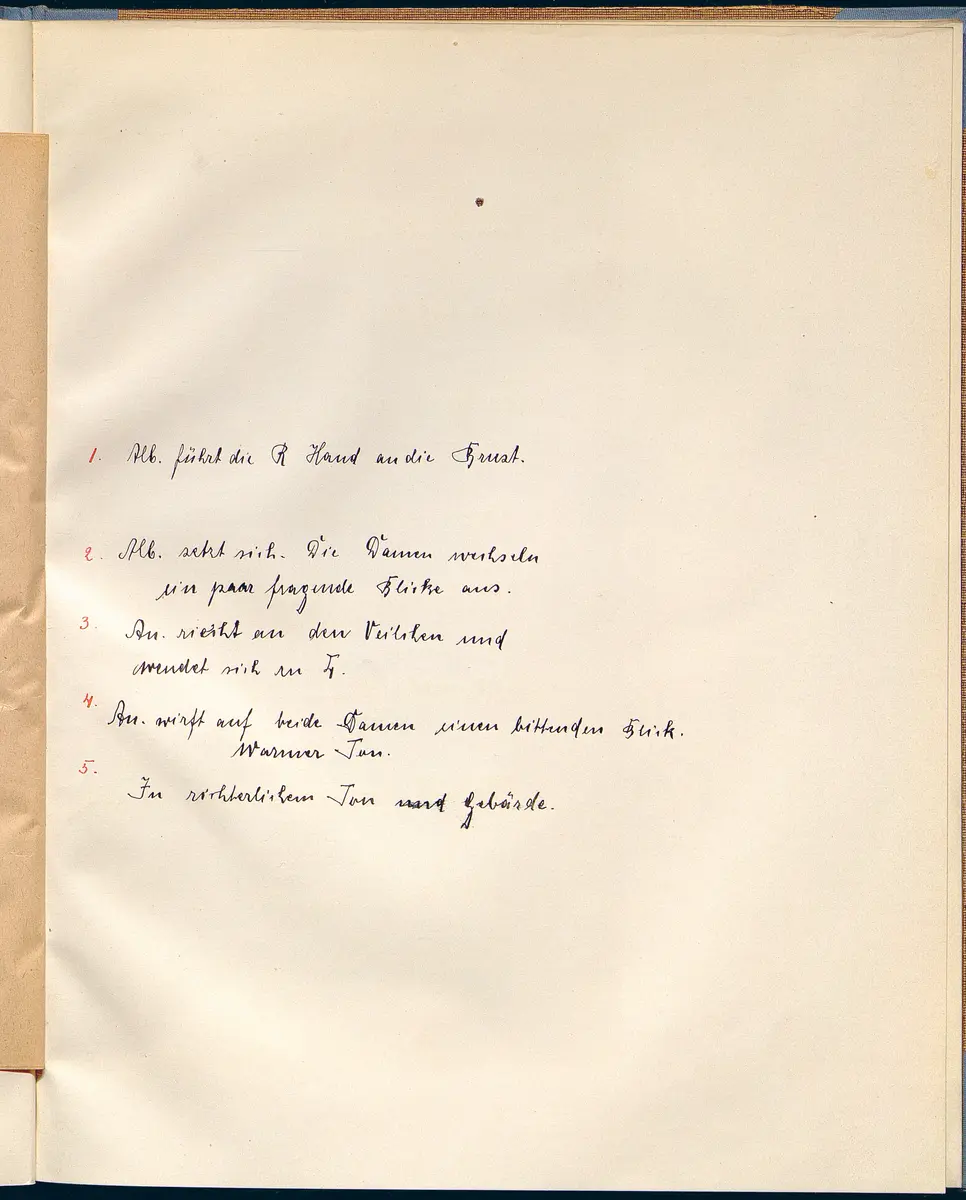 1. Alb. führt die R Hand an die Brust.
2. Alb. setzt sich. Die Damen wechseln
ein paar fragende Blicke aus.
3. An. riecht an den Veilchen und
wendet sich zu
4. An. wirft auf beide Damen einen bittenden Blick.
Warmer Ton.
5.
In richterlichem Ton und Gebärde.